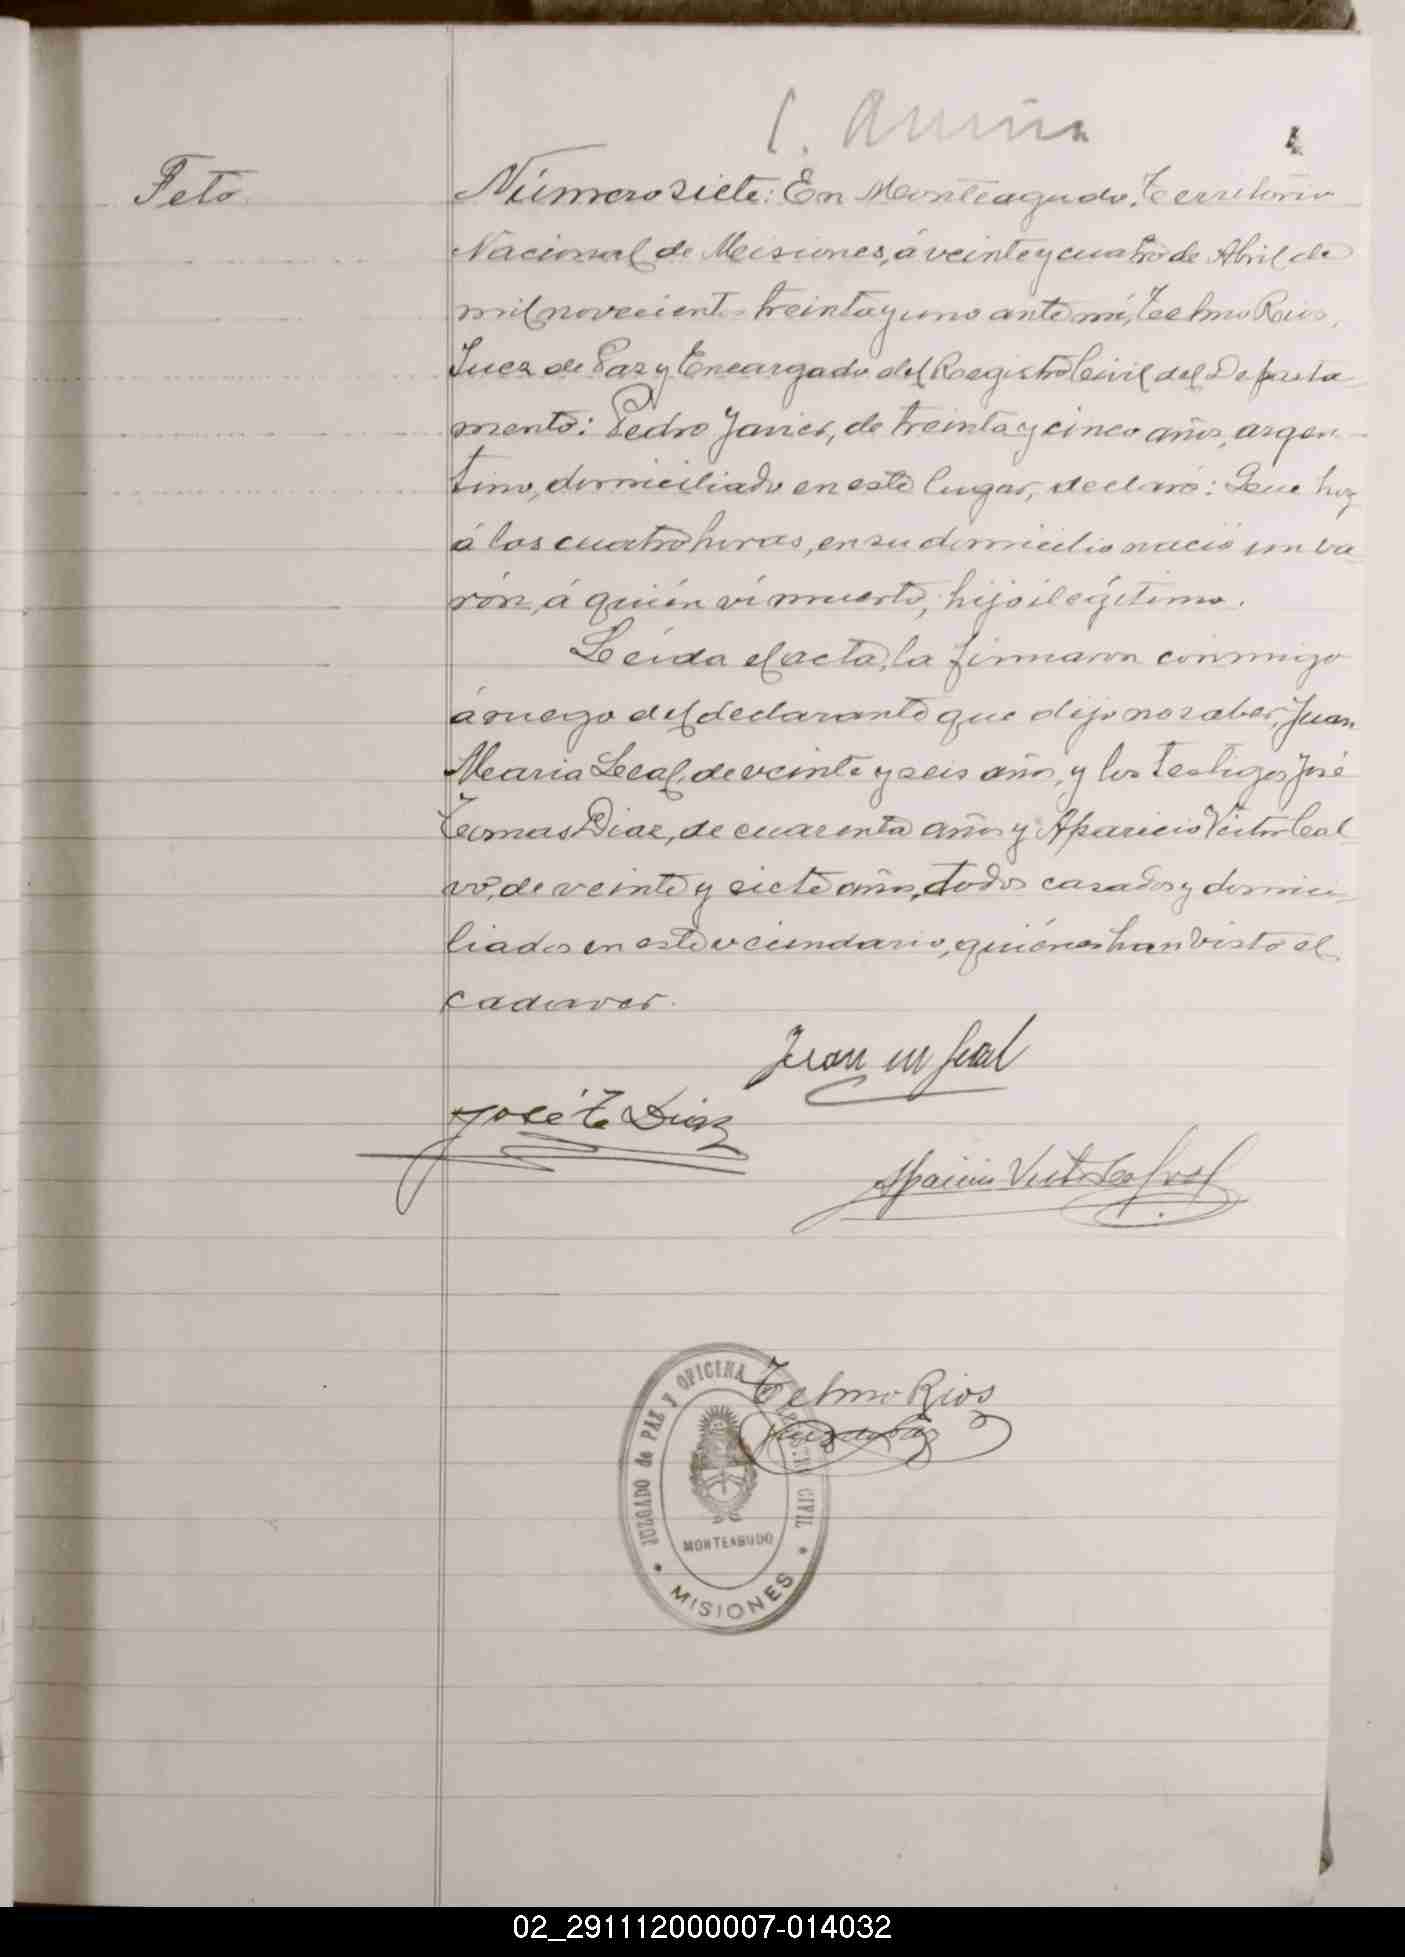 Feto
Número siete: En Monteagudo, Territorio
Nacional de Misiones, á veinte y cuatro de Abril de
mil novecientos treinta y uno ante mí, Telmo Rios,
Juez de Paz y Encargado del Registro Civil del Departa
mento: Pedro Javier, de treinta y cinco años, argen-
tino, domiciliado en este lugar, declaró: Que hoy
á las cuatro horas, en su domicilio nació un va-
rón, á quién ví muerto, hijo ilegítimo.
Leída el acta, la firmaron conmigo
á ruego del declarante que dijo no saber, Juan
Maria Leal, de veinte y seis años, y los testigos José
Tomas Diaz, de cuarenta años y Aparicio Victor Cal
vo, de veinte y siete años, todos casados y domici-
liados en este vecindario, quiénes han visto el
cadaver.
Juan M Leal
José T Diaz
Aparicio Victor
Telmo Rios
Juez de Paz
JUZGADO de PAZ Y OFICINA REGISTRO CIVIL
MONTEAGUDO
MISIONES
02_291112000007-014032